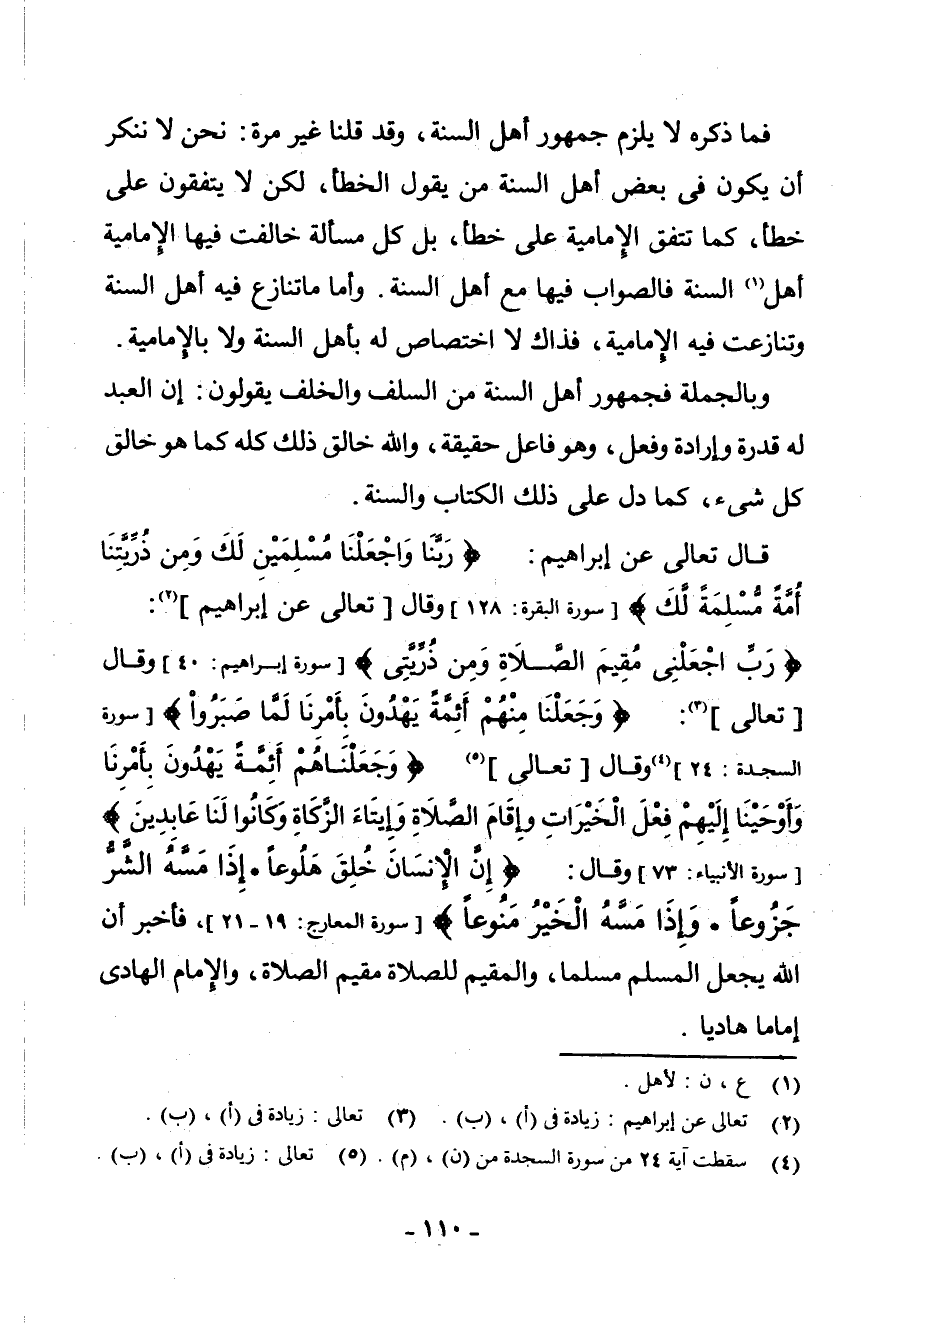 فما ذكره لا يلزم جمهور أهل السنة، وقد قلنا غير مرة: نحن لا ننكر
أن يكون فى بعض أهل السنة من يقول الخطأ، لكن لا يتفقون على
خطأ، كما تتفق الإمامية على خطأ، بل كل مسألة خالفت فيها الإمامية
أهل(١) السنة فالصواب فيها مع أهل السنة. وأما ماتنازع فيه أهل السنة
وتنازعت فيه الإمامية، فذاك لا اختصاص له بأهل السنة ولا بالإمامية.
وبالجملة فجمهور أهل السنة من السلف والخلف يقولون: إن العبد
له قدرة وإرادة وفعل، وهو فاعل حقيقة، والله خالق ذلك كله كما هو خالق
كل شىء، كما دل على ذلك الكتاب والسنة.
قـال تعالى عن إبراهيم: ﴿ رَبَّنَا وَاجْعَلْنَا مُسْلِمَيْنِ لَكَ وَمِن ذُرِّيَّتِنَا
أُمَّةً مُّسْلِمَةً لَّكَ ﴾ [ سورة البقرة: ١٢٨ ] وقال [ تعالى عن إبراهيم ](٢):
﴿ رَبِّ اجْعَلْنِى مُقِيمَ الصَّـلَاةِ وَمِن ذُرِّيَّتِى ﴾ [ سورة إبـراهيم: ٤٠ ] وقـال
[ تعالى ](٣): ﴿ وَجَعَلْنَا مِنْهُمْ أَئِمَّةً يَهْدُونَ بِأَمْرِنَا لَمَّا صَبَرُواْ ﴾ [ سورة
السجدة : ٢٤ ](٤) وقـال [ تعـالى ](٥) ﴿ وَجَعَلْنَـاهُمْ أَئِمَّـةً يَهْدُونَ بِأَمْرِنَا
وَأَوْحَيْنَا إِلَيْهِمْ فِعْلَ الْخَيْرَاتِ وإِقَامَ الصَّلَاةِ وَإِيتَاءَ الزَّكَاةِ وَكَانُوا لَنَا عَابِدِينَ ﴾
[ سورة الأنبياء: ٧٣ ] وقـال: ﴿ إِنَّ الْإِنسَانَ خُلِقَ هَلُوعاً . إِذَا مَسَّهُ الشَّرُّ
جَزُوعاً . وَإِذَا مَسَّهُ الْخَيْرُ مَنُوعاً ﴾ [ سورة المعارج: ١٩ ـ ٢١ ]، فأخبر أن
الله يجعل المسلم مسلما، والمقيم للصلاة مقيم الصلاة، والإمام الهادى
إماما هاديا .
(١) ع ، ن : لأهل .
(٢) تعالى عن إبراهيم : زيادة فى (أ) ، (ب) . (٣) تعالى : زيادة فى (أ) ، (ب) .
(٤) سقطت آية ٢٤ من سورة السجدة من (ن) ، (م) . (٥) تعالى : زيادة فى (أ) ، (ب) .
ـ ١١٠ ـ